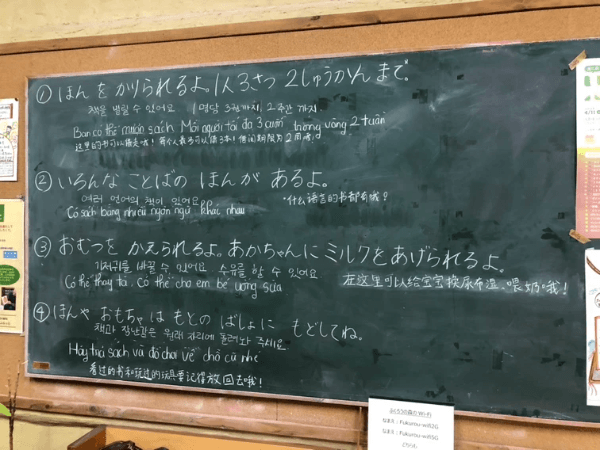 ① ほん を かりられるよ。1人3さつ 2しゅうかん まで。
책을 빌릴 수 있어요 1명당 3권까지, 2주간 까지
Bạn có thể mượn sách Mỗi người tối đa 3 cuốn trong vòng 2 tuần
② いろんな ことばの ほんが あるよ。
여러 언어의 책이 있어요
・什么语言的书都有哦?
Có sách bằng nhiều ngôn ngữ khác nhau
③ おむつを かえられるよ。あかちゃんに ミルクをあげられるよ。
기저귀를 바꿀 수 있어요 수유를 할 수 있어요
在这里可以给宝宝换尿布湿、喂奶哦!
Có thể thay tã. có thể cho em bé uống sữa
④ ほんや おもちゃ は もとの ばしょに もどしてね。
책과 장난감은 원래 자리에 돌려놔 주세요
Hãy trả sách và đồ chơi về chỗ cũ nhé
看过的书和玩过的玩具要记得放回去哦!